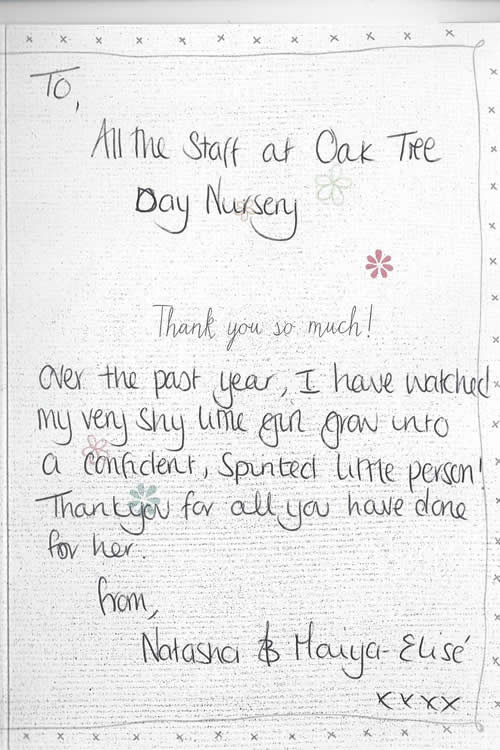 To,
All the Staff at Oak Tree
Day Nursery
Thank you so much!
Over the past year, I have watched
my very shy little girl grow into
a confident, spirited little person!
Thankyou for all you have done
for her.
from,
Natasha & Maiya-Elisé
xxxx